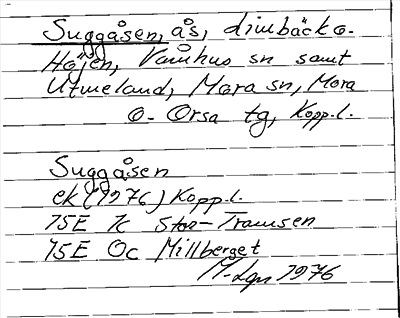 Suggåsen, ås, Limbäck o.
Höjen, Våmhus sn samt
Utmeland, Mora sn, Mora
o. Orsa tg, Kopp.l.
Suggåsen
ek (1976) Kopp.l.
15E 7c Stor-Tramsen
15E 0c Millberget
1976